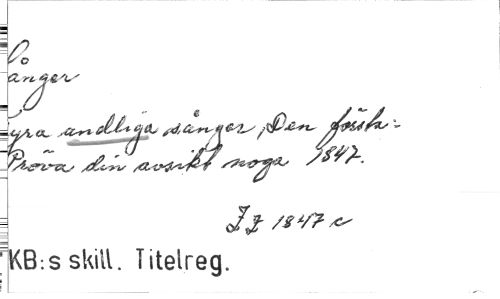 Sånger
Fyra andliga sånger, Den första:
Pröva din avsikt noga 1847.
1847 c
KB:s skill. Titelreg.